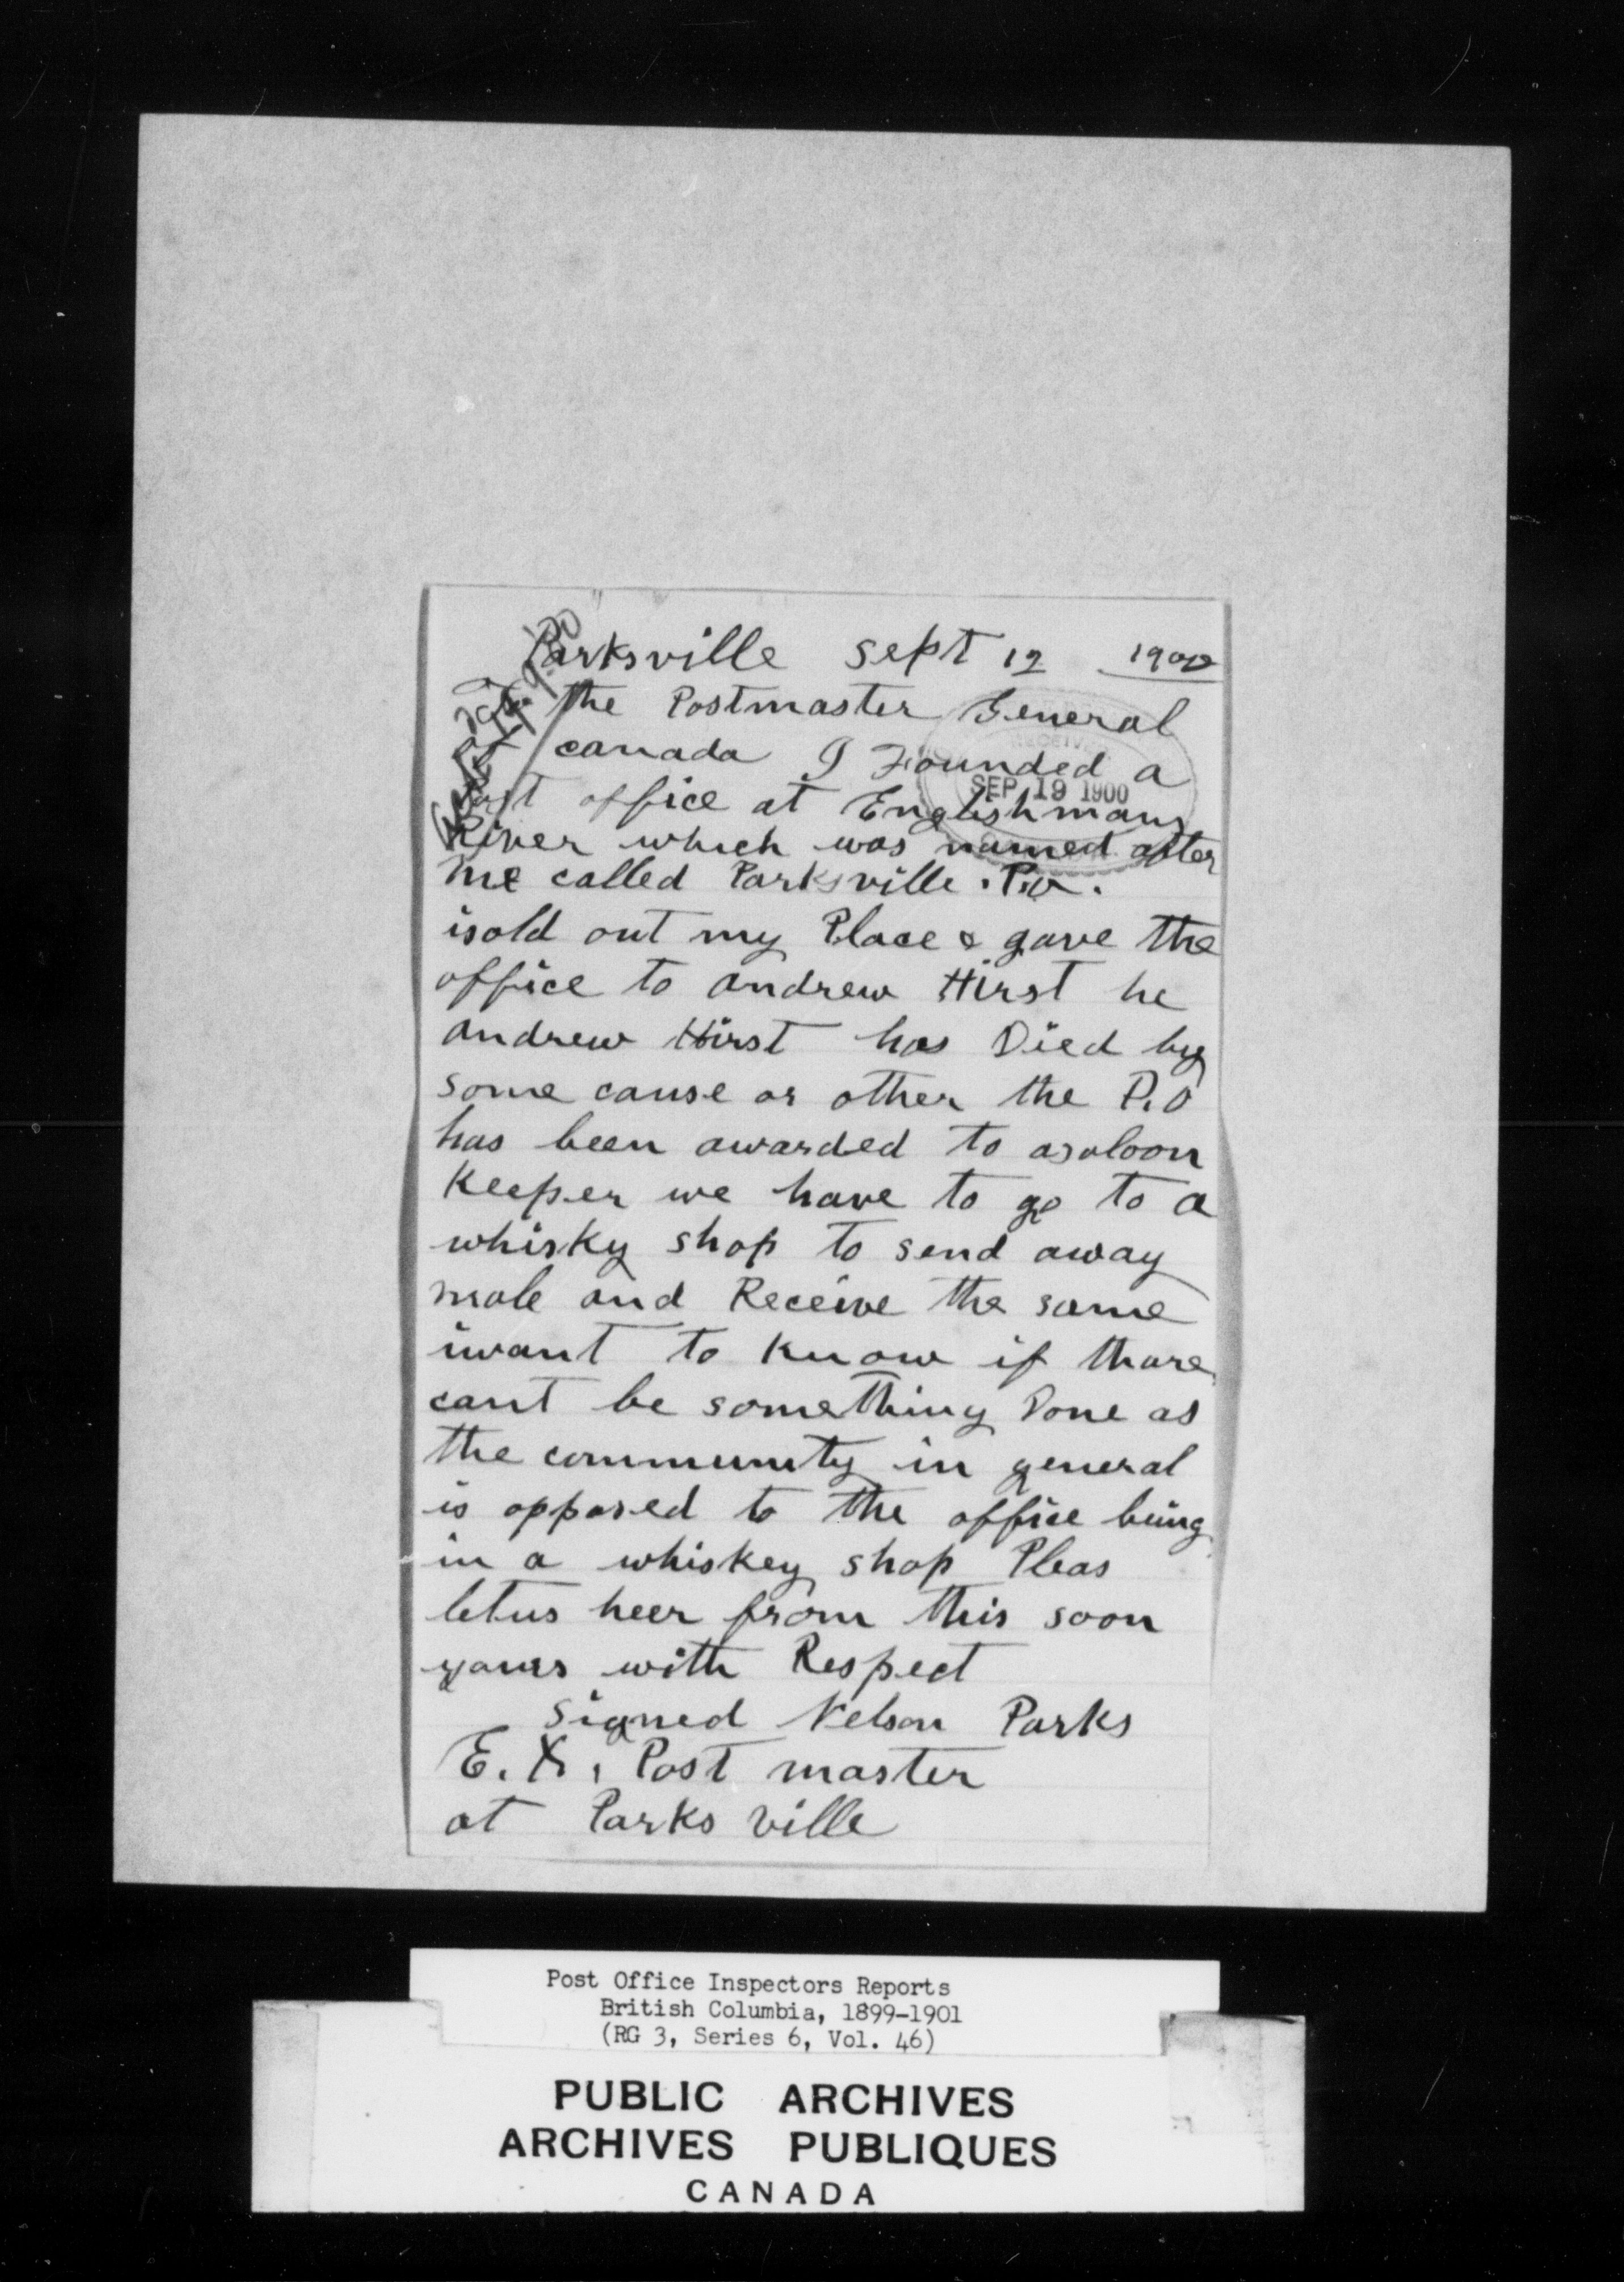 Parksville Sept 12 1900
To the Postmaster General
of canada I Founded a
Post office at Englishmans
River which was named after
me called Parksville . P.O.
isold out my Place & gave the
office to andrew Hirst he
andrew Hirst has Died by
some cause or other the P.O
has been awarded to asaloon
Keeper we have to go to a
whisky shop to send away
male and Receive the same
iwant to Know if thare
cant be something Done as
the community in general
is opposed to the office being
in a whiskey shop Pleas
letus heer from this soon
yours with Respect
signed Nelson Parks
E.X. Post master
at Parks ville
RECEIVED
SEP 19 1900
Post Office Inspectors Reports
British Columbia, 1899-1901
(RG 3, Series 6, Vol. 46)
PUBLIC ARCHIVES
ARCHIVES PUBLIQUES
CANADA